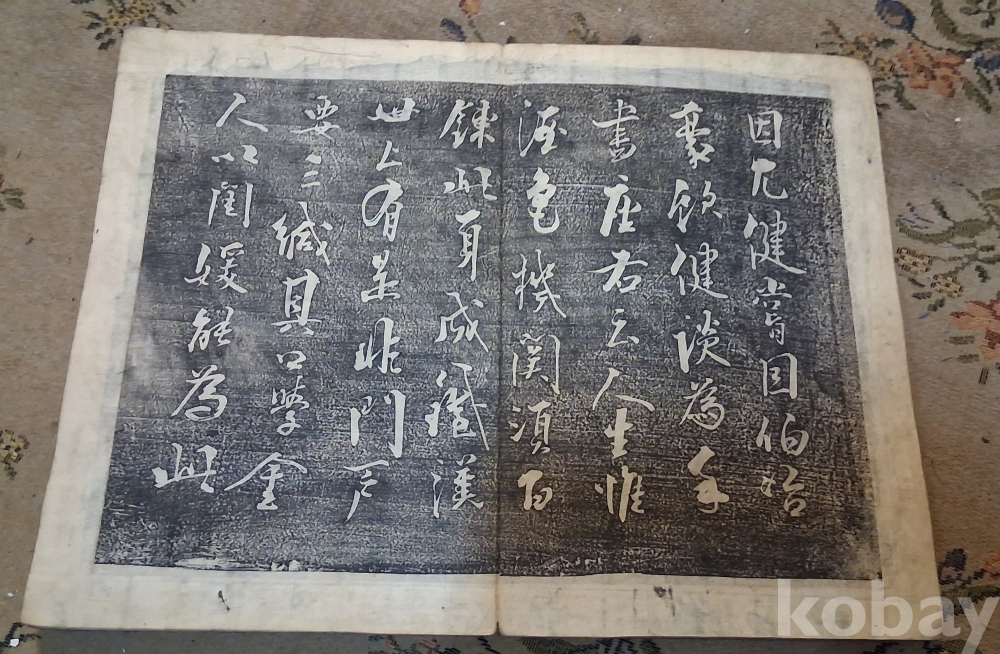 因尤健嘗因伯
豪飲健談為手
書座右云人生惟
酒色機関須百
鍊此身成鐵漢
世上有是非門戶
要三緘其口學金
人以閨媛能為此
kobay